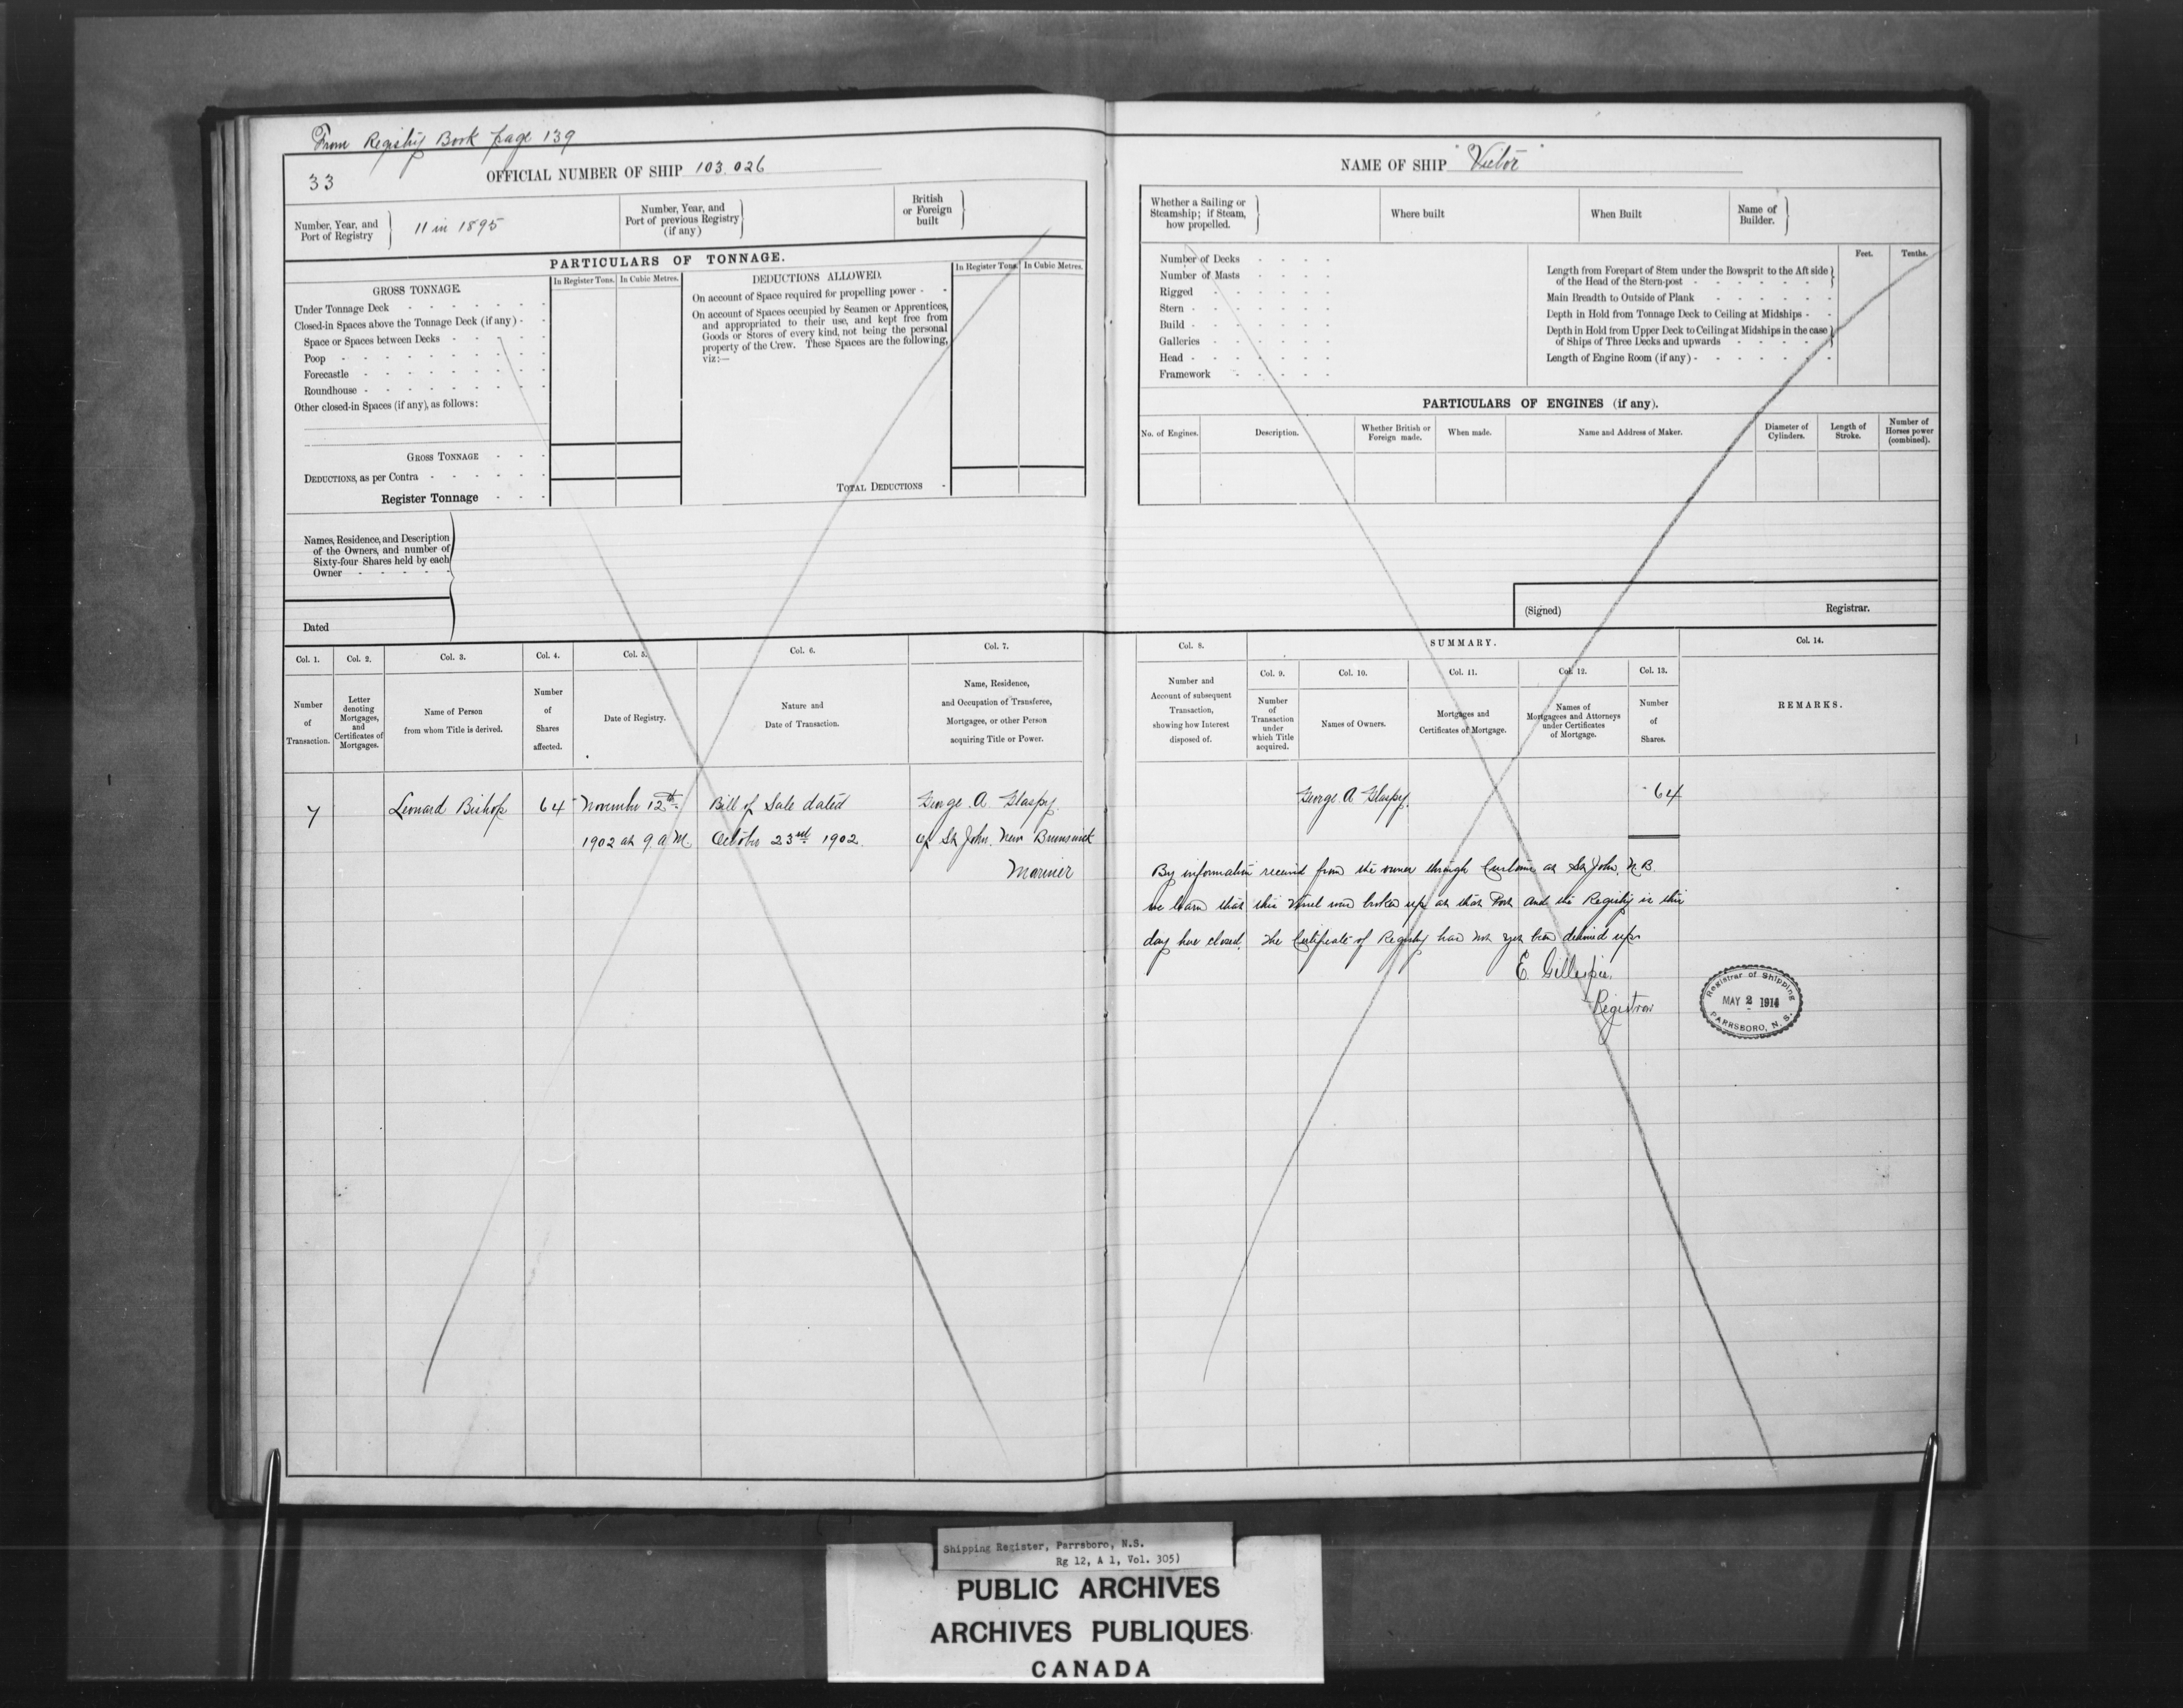 From Registry Book page 139
33
OFFICIAL NUMBER OF SHIP 103.026
Number, Year, and Port of Registry
11 in 1895
Number, Year, and Port of previous Registry (if any)
British or Foreign built
PARTICULARS OF TONNAGE.
GROSS TONNAGE.
In Register Tons.
In Cubic Metres.
DEDUCTIONS ALLOWED.
In Register Tons.
In Cubic Metres.
Under Tonnage Deck
Closed-in Spaces above the Tonnage Deck (if any) -
Space or Spaces between Decks
Poop
Forecastle
Roundhouse
Other closed-in Spaces (if any), as follows:
GROSS TONNAGE
DEDUCTIONS, as per Contra
Register Tonnage
On account of Space required for propelling power -
On account of Spaces occupied by Seamen or Apprentices,
and appropriated to their use, and kept free from
Goods or Stores of every kind, not being the personal
property of the Crew. These Spaces are the following,
viz:—
TOTAL DEDUCTIONS
Names, Residence, and Description
of the Owners, and number of
Sixty-four Shares held by each
Owner
Dated
Col. 1.
Col. 2.
Col. 3.
Col. 4.
Col. 5.
Col. 6.
Col. 7.
Number of Transaction.
Letter denoting Mortgages, and Certificates of Mortgages.
Name of Person from whom Title is derived.
Number of Shares affected.
Date of Registry.
Nature and Date of Transaction.
Name, Residence, and Occupation of Transferee, Mortgagee, or other Person acquiring Title or Power.
7
Leonard Bishop
64
November 12th
1902 at 9 a M
Bill of Sale dated
October 23rd 1902.
George A Glaspy
of St John. New Brunswick
Mariner
NAME OF SHIP "Victor"
Whether a Sailing or Steamship; if Steam, how propelled.
Where built
When Built
Name of Builder.
Number of Decks
Number of Masts
Rigged
Stern
Build
Galleries
Head
Framework
Feet.
Tenths.
Length from Forepart of Stem under the Bowsprit to the Aft side
of the Head of the Stern-post
Main Breadth to Outside of Plank
Depth in Hold from Tonnage Deck to Ceiling at Midships
Depth in Hold from Upper Deck to Ceiling at Midships in the case
of Ships of Three Decks and upwards
Length of Engine Room (if any)
PARTICULARS OF ENGINES (if any).
No. of Engines.
Description.
Whether British or Foreign made.
When made.
Name and Address of Maker.
Diameter of Cylinders.
Length of Stroke.
Number of Horses power (combined).
(Signed)
Registrar.
Col. 8.
SUMMARY.
Col. 14.
Col. 9.
Col. 10.
Col. 11.
Col. 12.
Col. 13.
Number and Account of subsequent Transaction, showing how Interest disposed of.
Number of Transaction under which Title acquired.
Names of Owners.
Mortgages and Certificates of Mortgage.
Names of Mortgagees and Attorneys under Certificates of Mortgage.
Number of Shares.
REMARKS.
George A Glaspy.
64
By information received from the owner through Customs at St John, N.B.
we learn that this Vessel was broken up at that Port and the Registry is this
day here closed. The Certificate of Registry has not yet been delivered up.
E. Gillespie.
Registrar
Registrar of Shipping
MAY 2 1914
PARRSBORO, N. S.
Shipping Register, Parrsboro, N.S.
Rg 12, A 1, Vol. 305)
PUBLIC ARCHIVES
ARCHIVES PUBLIQUES
CANADA